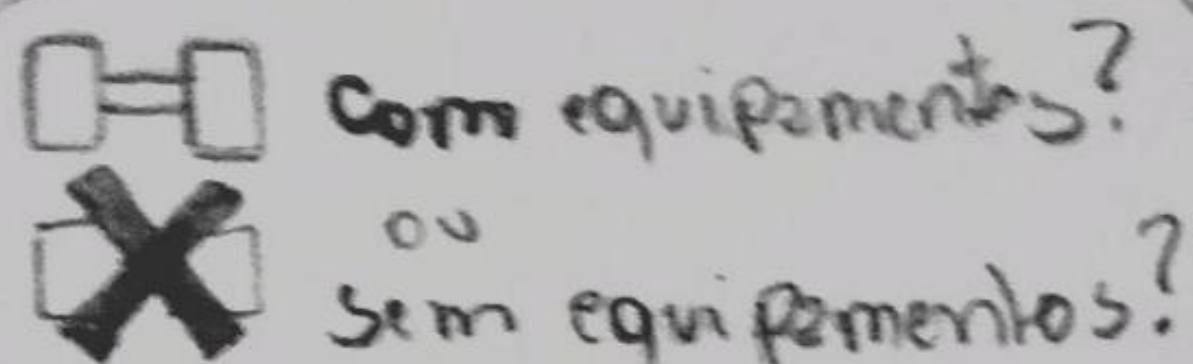 Com equipamentos?
ou
Sem equipamentos?